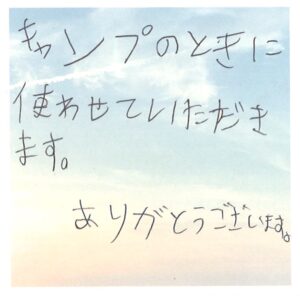 キャンプのときに
使わせていただき
ます。
ありがとうございます。